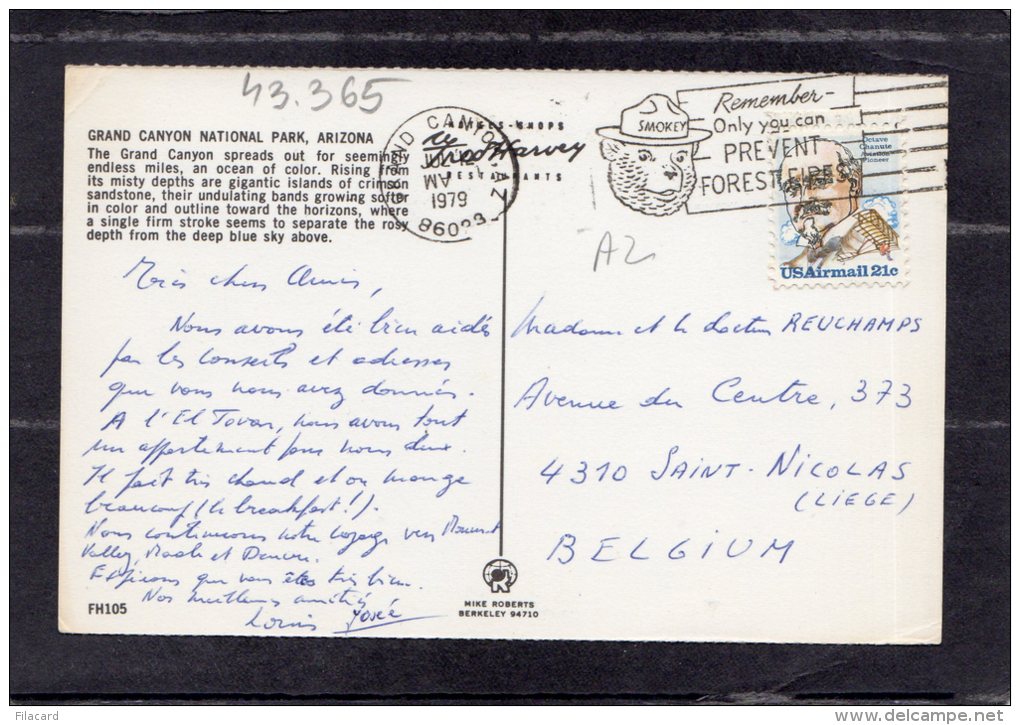 43.365
GRAND CANYON NATIONAL PARK, ARIZONA
The Grand Canyon spreads out for seemingly
endless miles, an ocean of color. Rising from
its misty depths are gigantic islands of crimson
sandstone, their undulating bands growing softer
in color and outline toward the horizons, where
a single firm stroke seems to separate the rosy
depth from the deep blue sky above.
GRAND CANYON, AZ
AM
1979
86023
HOTELS-SHOPS
Fred Harvey
RESTAURANTS
SMOKEY
Remember-
Only you can
PREVENT
FOREST FIRES
Octave
Chanute
Aviation
Pioneer
USAirmail 21c
A2
Très chers Amis,
Nous avons été bien aidés
par les conseils et adresses
que vous nous avez donnés.
A l'El Tovar, nous avons tout
un appartement pour nous deux.
Il fait très chaud et on mange
beaucoup (le breakfast!).
Nous continuons notre voyage vers Monument
Valley, et Denver.
Espérons que vous êtes très bien.
Nos meilleures amitiés
Louis Josée
Madame et le docteur REUCHAMPS
Avenue du Centre, 373
4310 SAINT-NICOLAS
(LIEGE)
BELGIUM
FH105
MIKE ROBERTS
BERKELEY 94710
Filacard
www.delcampe.net